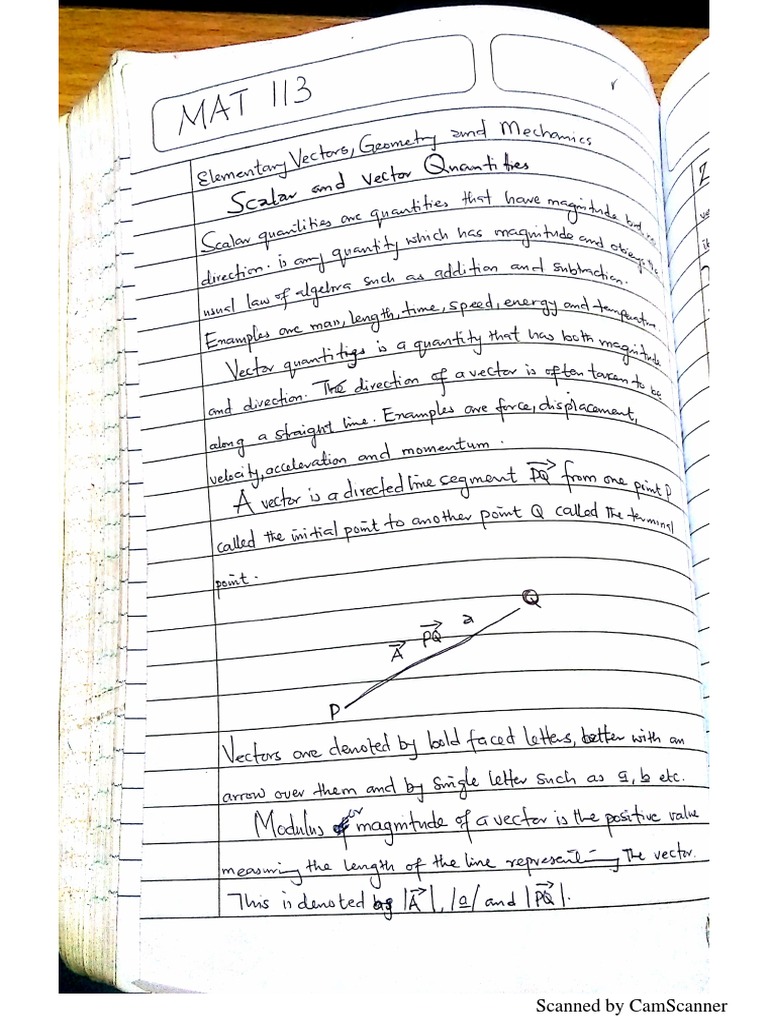 MAT 113
Elementary Vectors, Geometry and Mechanics
Scalar and vector Quantities
Scalar quantities are quantities that have magnitude but no
direction. is any quantity which has magnitude and obeys the
usual law of algebra such as addition and subtraction.
Examples are mass, length, time, speed, energy and temperature.
Vector quantities is a quantity that has both magnitude
and direction. The direction of a vector is often taken to be
along a straight line. Examples are force, displacement,
velocity, acceleration and momentum.
A vector is a directed line segment \overrightarrow{PQ} from one point P
called the initial point to another point Q called the terminal
point.
Q
\overrightarrow{A} \overrightarrow{PQ} a
P
Vectors are denoted by bold faced letters, better with an
arrow over them and by single letter such as a, b etc.
Modulus or magnitude of a vector is the positive value
measuring the length of the line representing The vector.
This is denoted by |\overrightarrow{A}|, |a| and |\overrightarrow{PQ}|.
Scanned by CamScanner